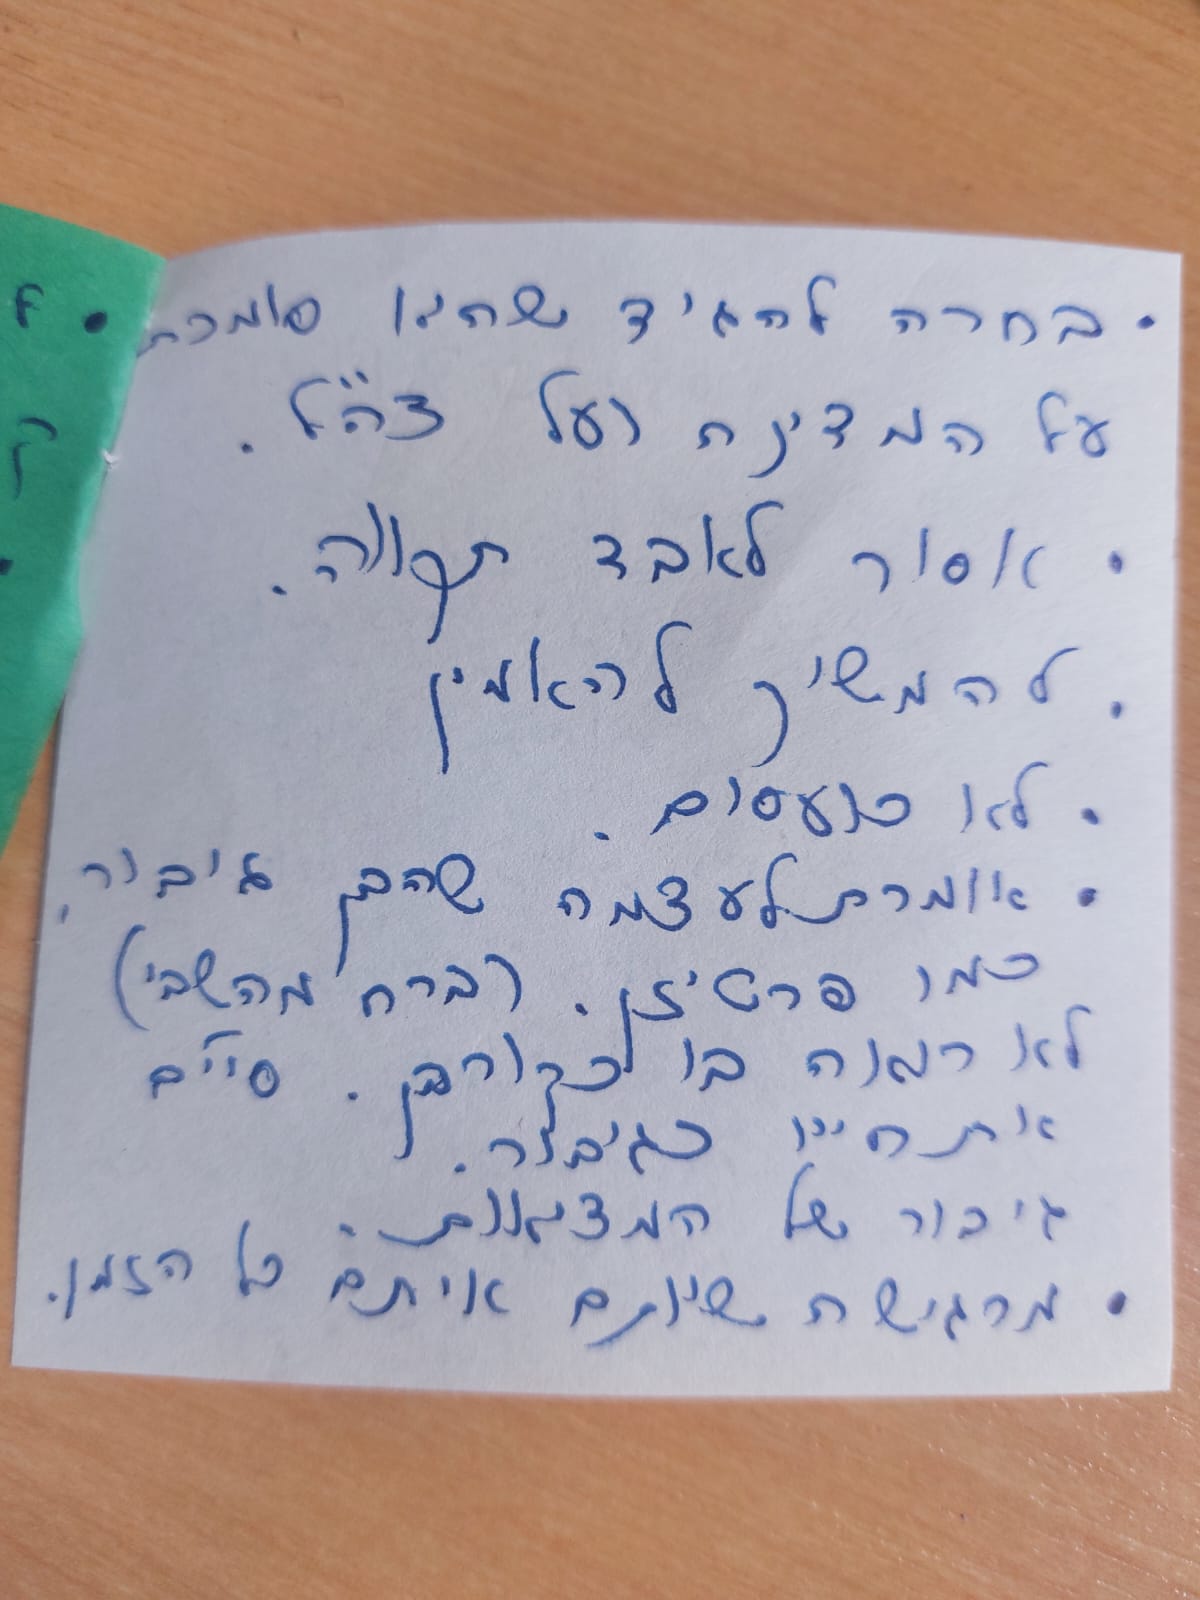 • בחרה להגיד שהיא סומכת
על המדינה ועל צה"ל.
• אסור לאבד תקווה.
• להמשיך להאמין
• לא כועסים.
• אומרת לעצמה שהבן גיבור,
כמו פרטיזן. (ברח מהשבי)
לא רואה בו כקורבן. סיים
את חייו כגיבור.
גיבור של המציאות.
• מרגישה שיותם איתם כל הזמן.